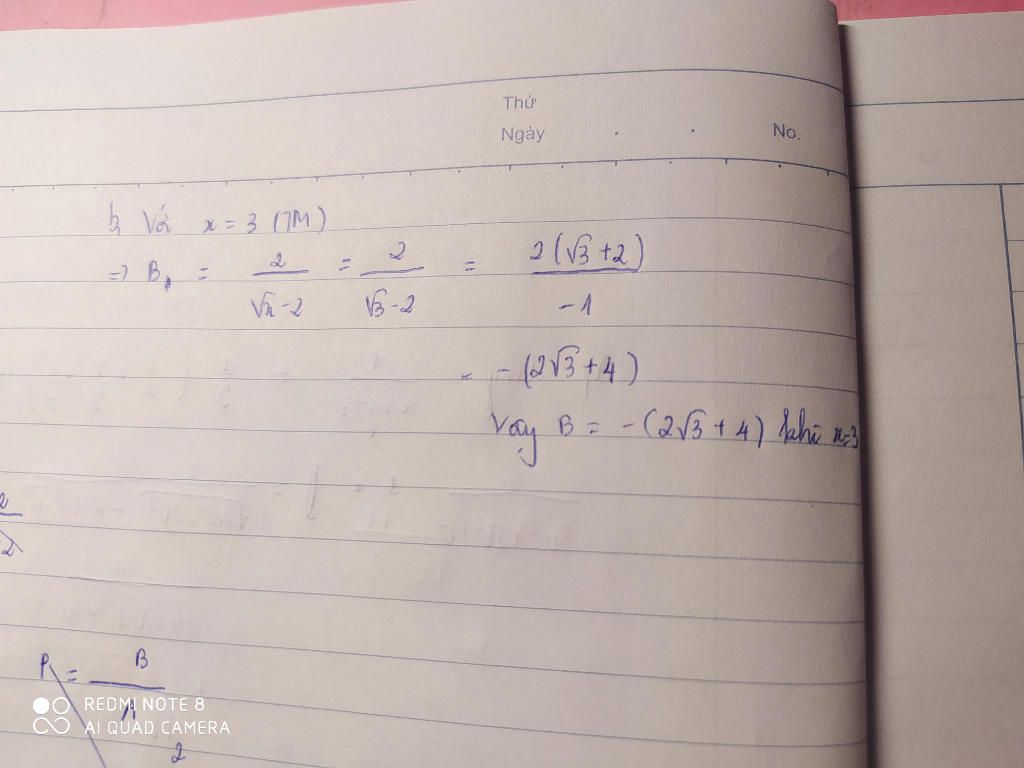 Thứ
Ngày . . No.
b, Với x = 3 (TM)
=> B = 2/(√x-2) = 2/(√3-2) = 2(√3+2)/-1
= -(2√3+4)
Vậy B = -(2√3+4) khi x=3
2
2
P = B/A
2
REDMI NOTE 8
AI QUAD CAMERA